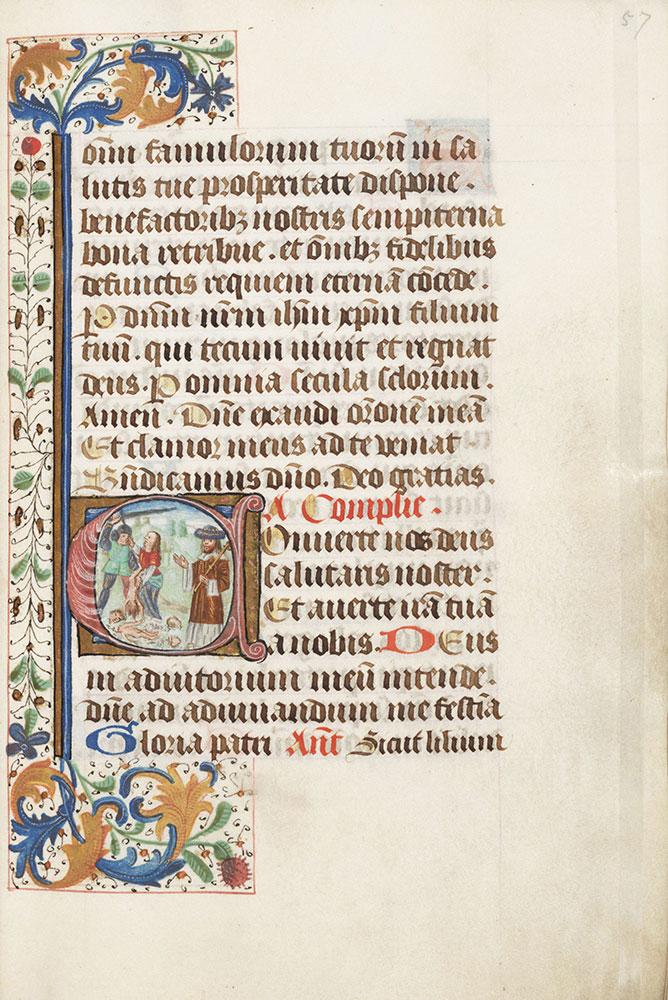 57
om̄i famulorum tuorū in sa
lutis tue prosperitate dispone.
benefactoribꝫ nostris sempiterna
bona retribue. et om̄ibꝫ fidelibus
defunctis requiem eternā cōcede.
P dn̄m nr̄m ihm̄ xpm̄ filium
tuū. qui tecum uiuit et regnat
deus. P omnia secula sclorum.
Amen. Dn̄e exaudi or̄onē meā
Et clamor meus ad te veniat
Bn̄dicamus dn̄o. Deo gratias.
A Complie.
Conuerte nos deus
salutaris noster.
Et auerte irā tuā
a nobis. Deus
in adiutorium meū intende.
dn̄e ad adiuuandum me festīa
Gloria patri Ant̄ Sicut lilium